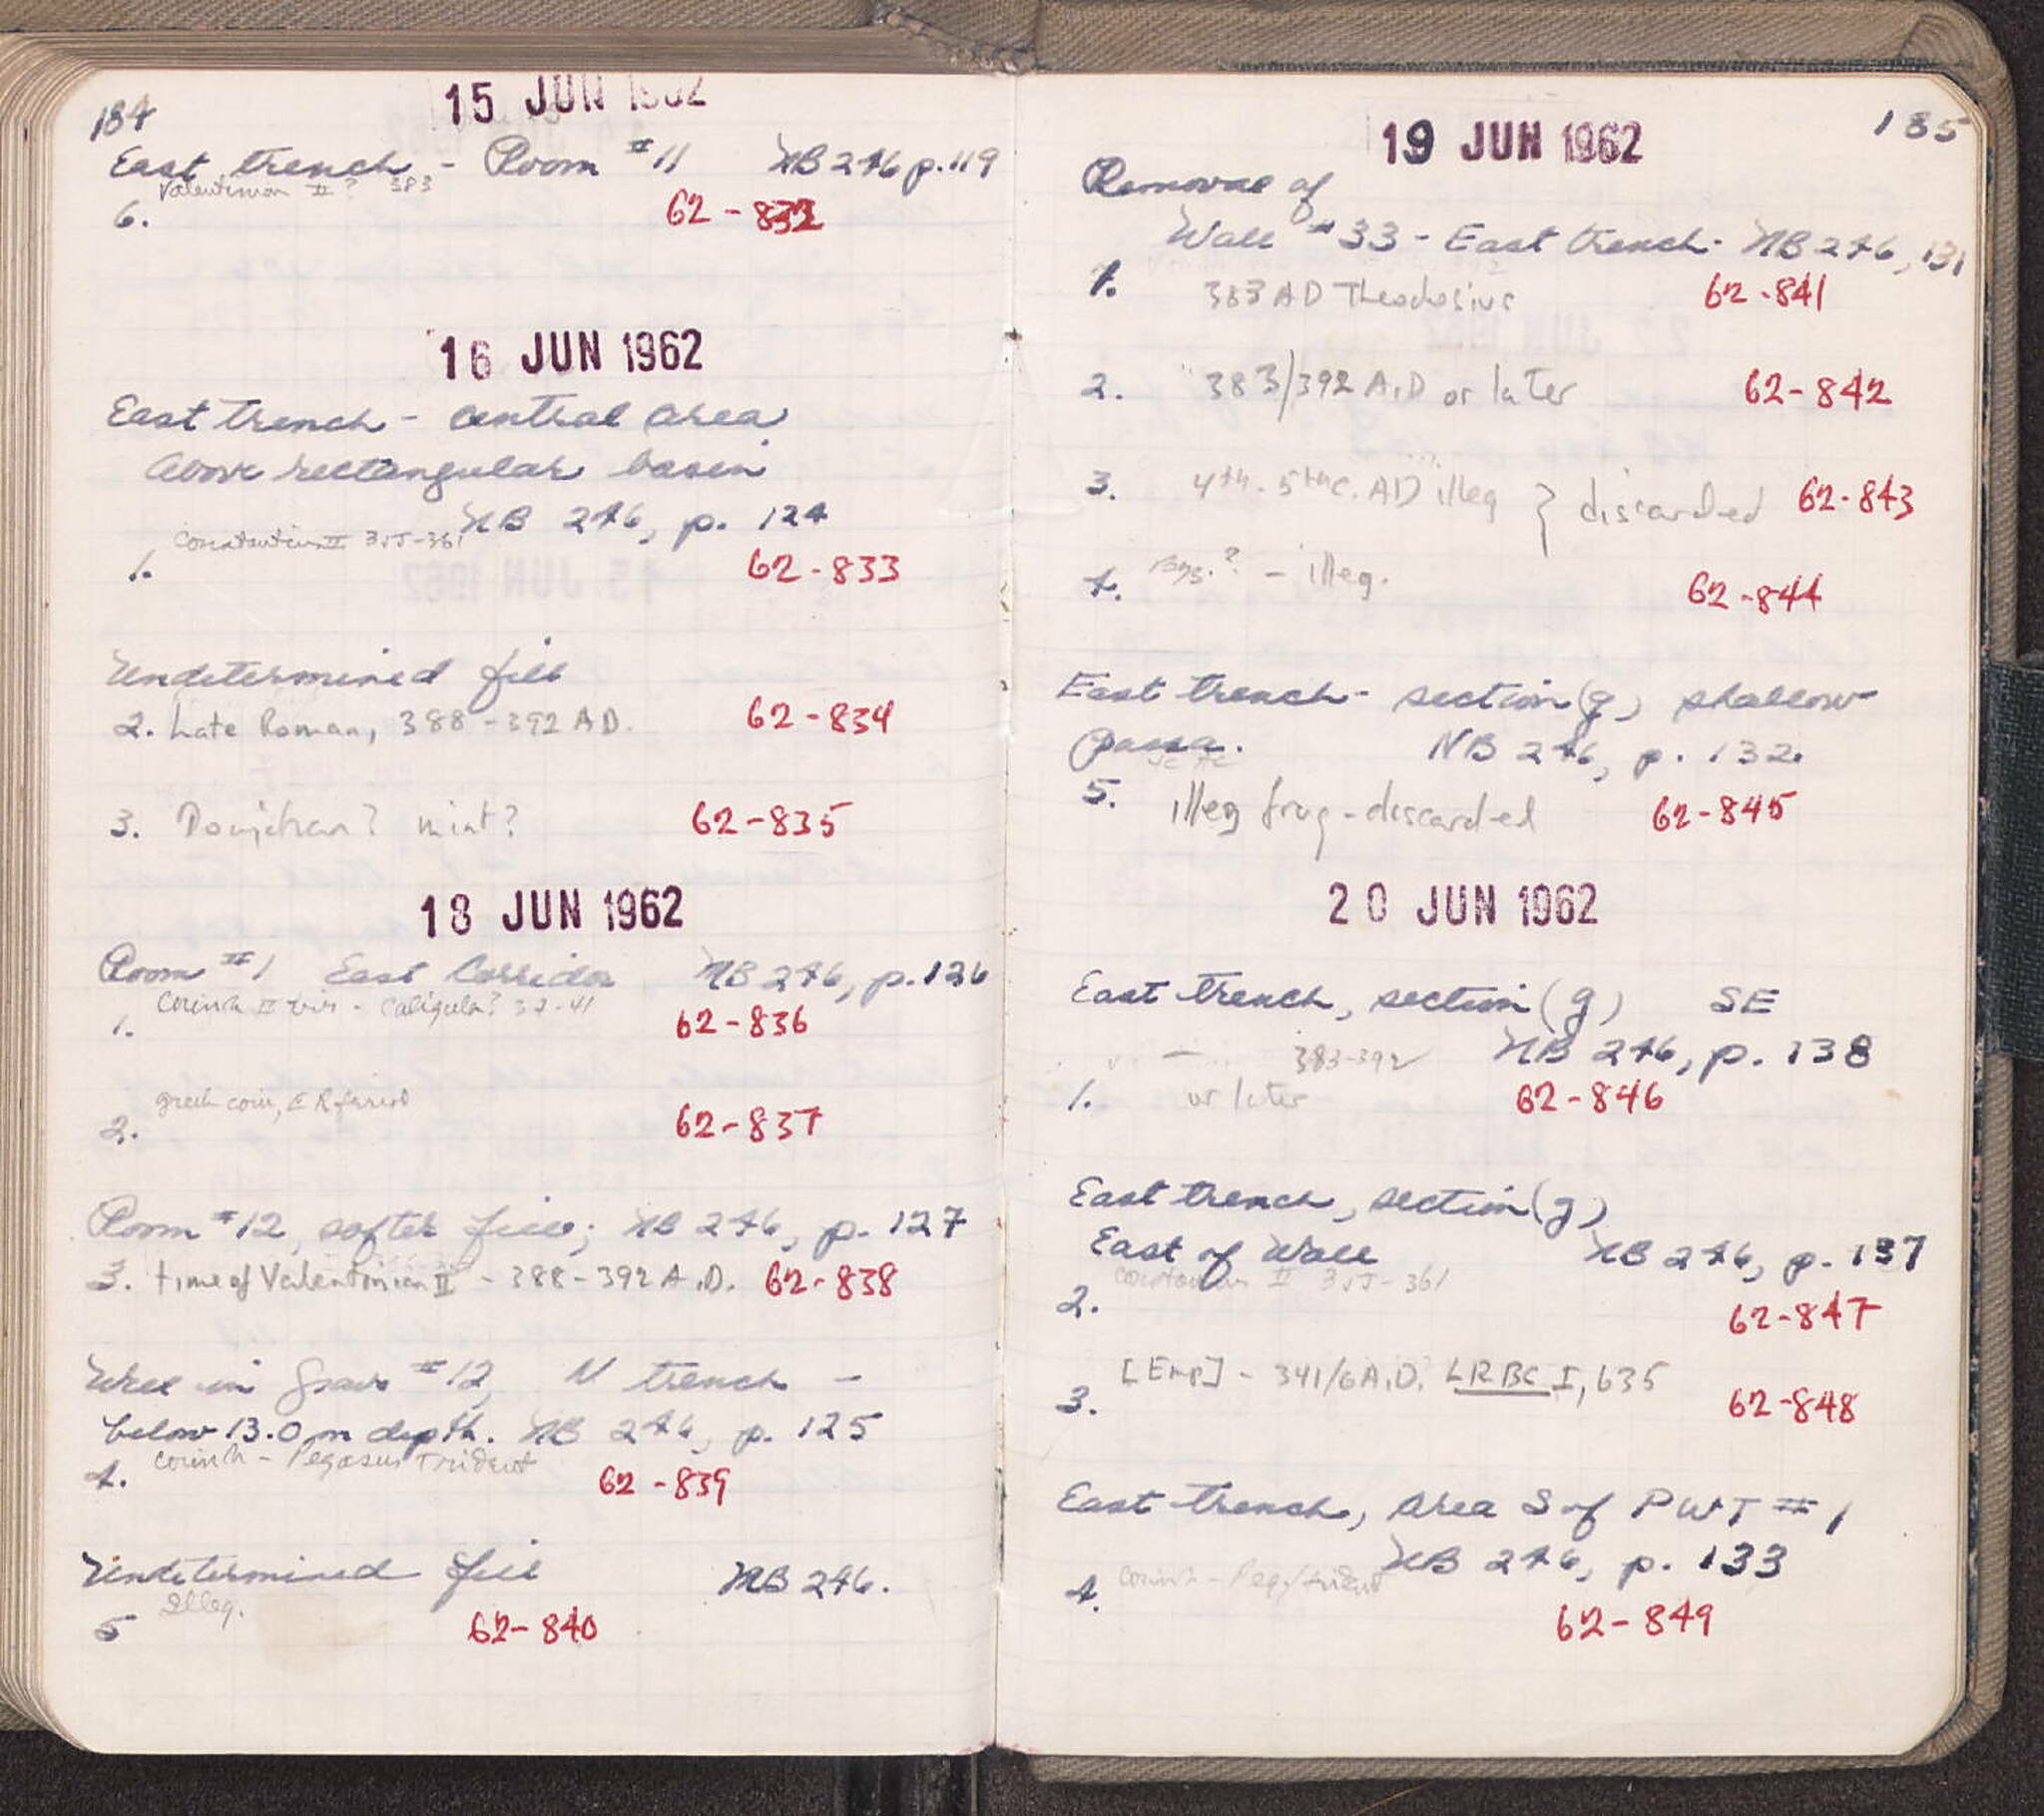 184
15 JUN 1962
East trench - Room #11 NB 246 p.119
Valentinian II? 383
6. 62-832
16 JUN 1962
East trench - central area
above rectangular basin
NB 246, p. 124
Constantius II 355-361
1. 62-833
Undetermined fill
2. Late Roman, 388-392 AD. 62-834
3. mint? 62-835
18 JUN 1962
Room #1 East Corridor NB 246, p.126
Corinth II vir - Caligula? 37-41
1. 62-836
greek coin,
2. 62-837
Room #12, softer fill; NB 246, p. 127
3. time of Valentinian II - 388-392 A.D. 62-838
Well in Grave #12, N trench -
below 13.0 m depth. NB 246, p. 125
Corinth - Pegasus Trident
4. 62-839
Undetermined fill NB 246.
Illeg.
5 62-840
185
19 JUN 1962
Removal of
Wall #33 - East trench - NB 246, 131
1. 383 AD Theodosius 62-841
2. 383/392 A.D or later 62-842
3. 4th-5th c. AD illeg } discarded 62-843
4. Byz.? - illeg. 62-844
East trench - section (g) shallow
NB 246, p. 132.
5. illeg frag - discarded 62-845
20 JUN 1962
East trench, section (g) SE
383-392 NB 246, p. 138
1. or later 62-846
East trench, section (g)
East of Wall NB 246, p. 137
Constantius II 355-361
2. 62-847
[Emp] - 341/6 A.D. LRBC I, 635
3. 62-848
East trench, area S of PWT #1
NB 246, p. 133
Corinth - Peg/trident
4. 62-849